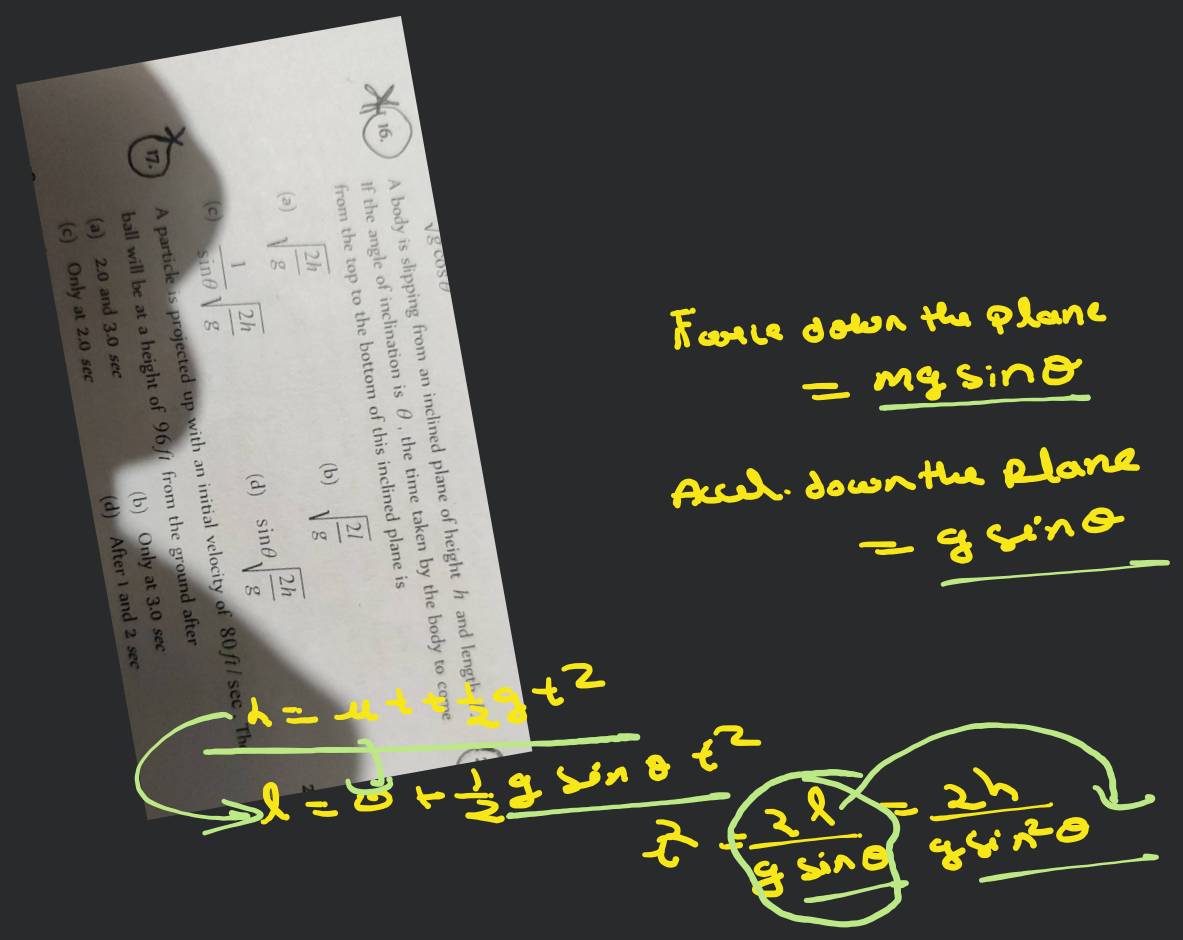 √g cos θ
16. A body is slipping from an inclined plane of height h and length l.
If the angle of inclination is θ, the time taken by the body to come
from the top to the bottom of this inclined plane is
(a) √(2h/g) (b) √(2l/g)
(c) 1/sinθ √(2h/g) (d) sinθ √(2h/g)
17. A particle is projected up with an initial velocity of 80 ft/sec. The
ball will be at a height of 96 ft from the ground after
(a) 2.0 and 3.0 sec (b) Only at 3.0 sec
(c) Only at 2.0 sec (d) After 1 and 2 sec
Force down the plane
= mg sinθ
Accel. down the plane
= g sinθ
h = ut + ½gt²
l = 0 + ½ g sin θ t²
t² = 2l/(g sinθ) = 2h/(g sin²θ)